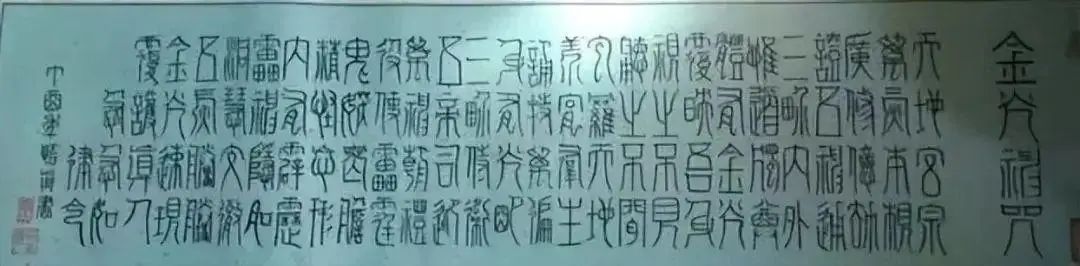 金光神咒
天地玄宗
萬炁本根
廣修億劫
證吾神通
三界內外
惟道獨尊
體有金光
覆映吾身
視之不見
聽之不聞
包羅天地
養育群生
誦持萬遍
身有光明
三界侍衛
五帝司迎
萬神朝禮
役使雷霆
鬼妖喪膽
精怪忘形
內有霹靂
雷神隱名
洞慧交徹
五炁騰騰
金光速現
覆護真人
急急如
律令
丁酉年 書